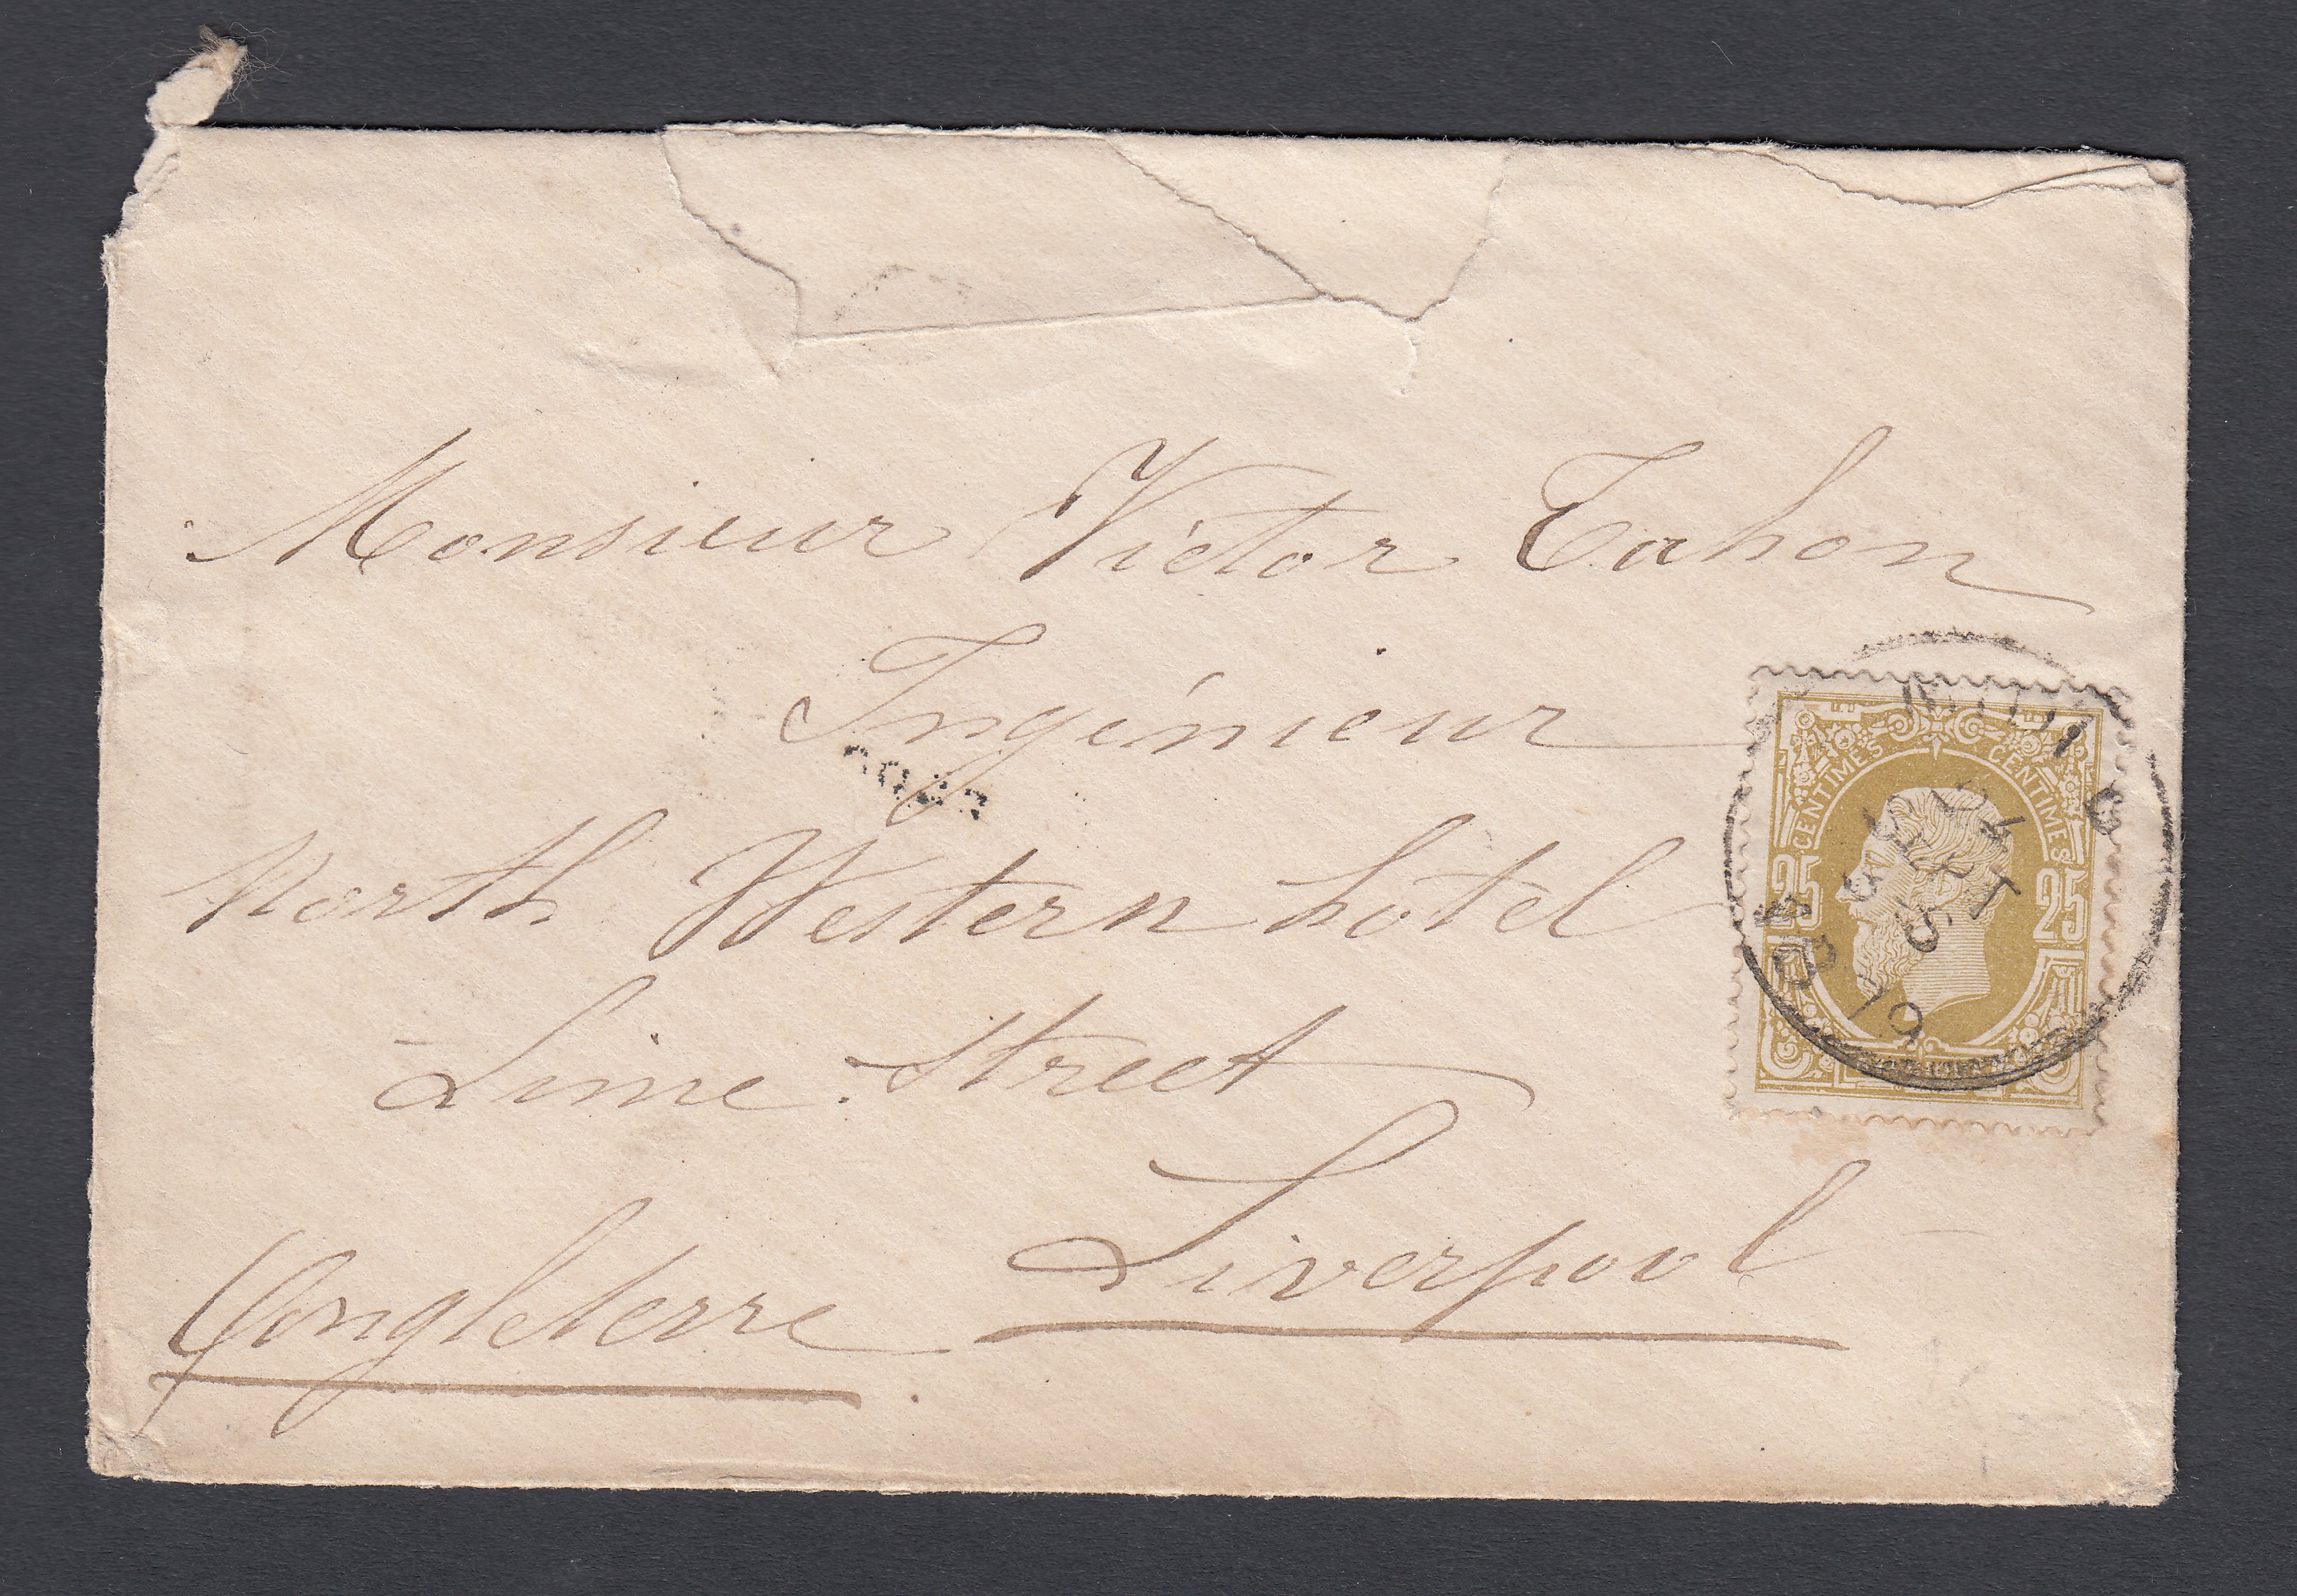 Monsieur Victor Tahon
Ingénieur
North Western hôtel
Lime Street
Liverpool
Angleterre
CENTIMES CENTIMES
25 25
SEPT
79